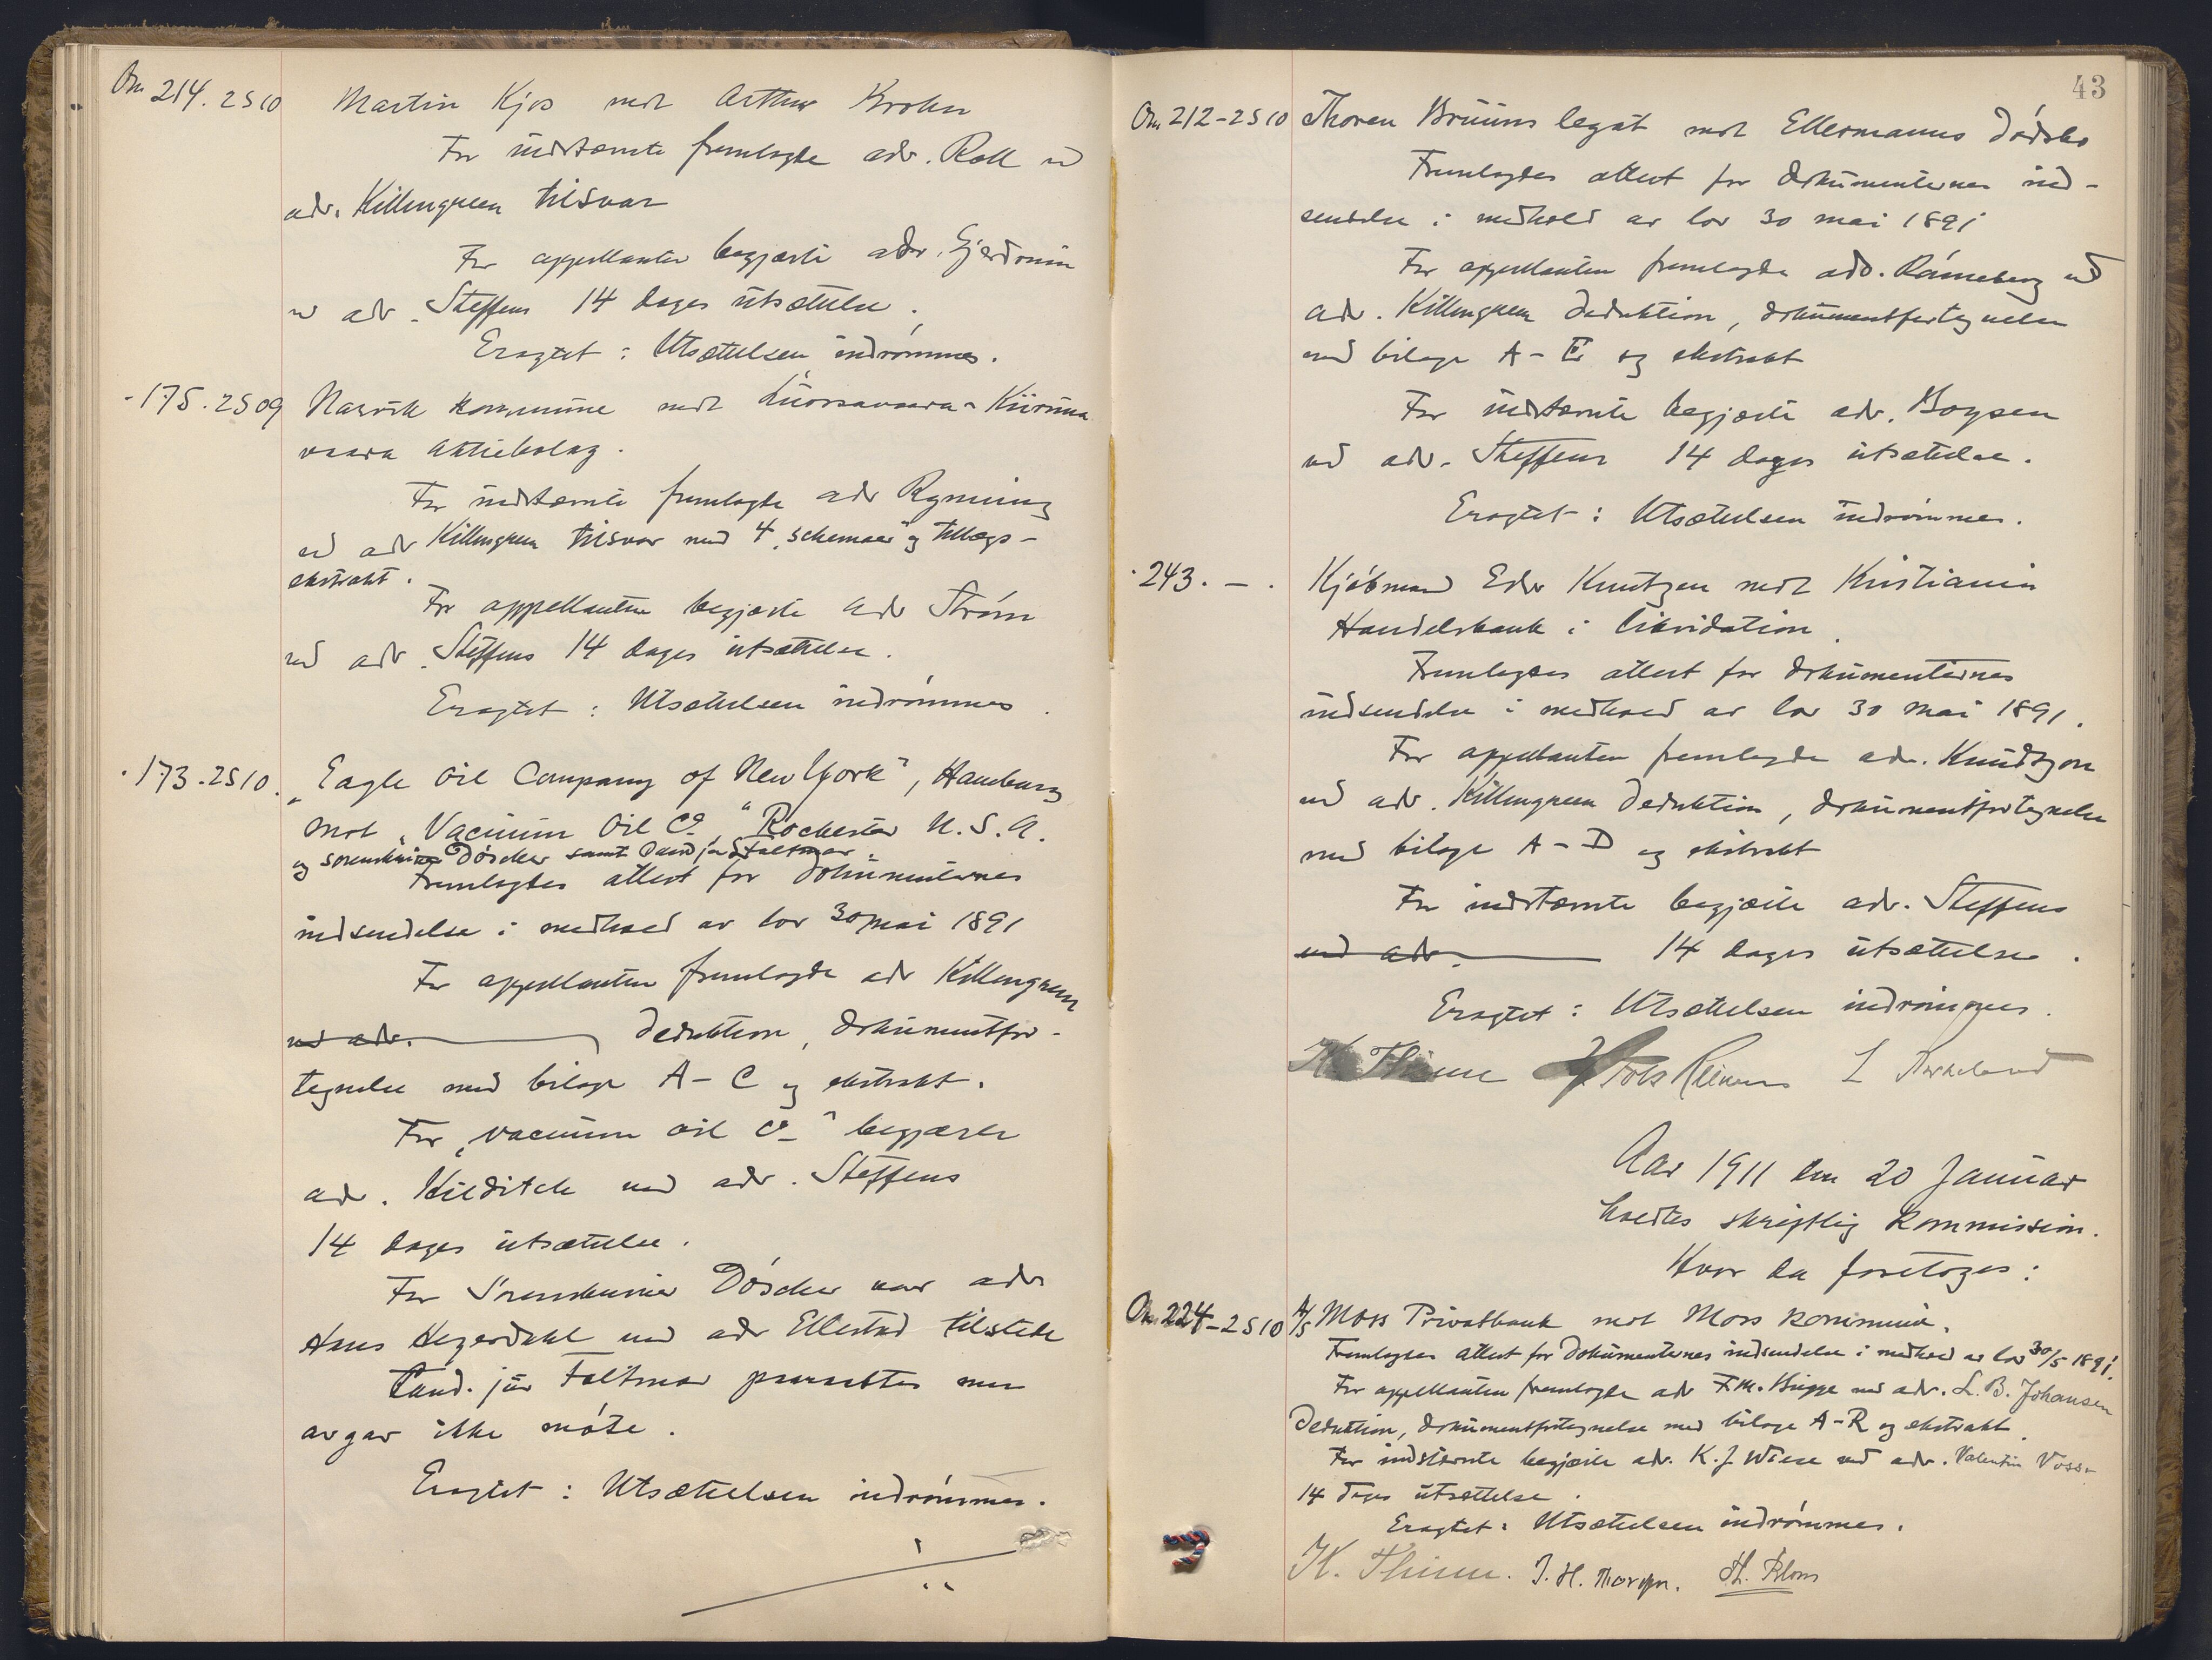 Om 214. 2S10 Martin Kjos mot Arthur Krohn
For indstevnte fremlagde adv. Roll ved
adv. Killengreen tilsvar
For appellanten begjærte adv. Gjerdrum
ved adv. Steffens 14 dages utsættelse.
Eragtet: Utsættelsen indrømmes.
- 175. 2S09 Narvik kommune mot Luossavaara-Kiiruna
vaara Aktiebolag.
For indstevnte fremlagde adv Rynning
ved adv Killengreen tilsvar med 4 „schemaer" og tillægs-
ekstrakt.
For appellanten begjærte adv Strøm
ved adv. Steffens 14 dages utsættelse.
Eragtet: Utsættelsen indrømmes.
- 173-2S10. „Eagle Oil Company of New York", Hamburg
mot „Vacuum Oil Co", Rochester U.S.A.
og sorenskriver Døscher samt Cand jur Faltmar.
Fremlagdes attest for dokumenternes
indsendelse i medhold av lov 30 mai 1891
For appellanten fremlagde adv Killengreen
ved adv. deduktion, dokumentfor-
tegnelse med bilage A-C og ekstrakt.
For „Vacuum Oil Co" begjærte
adv. Kielditch ved adv. Steffens
14 dages utsættelse.
For Sorenskriver Døscher var adv
Hans Hegerdahl ved adv Ellestad tilstede
Cand. jur Faltmar paaraabtes men
avgav ikke møte.
Eragtet: Utsættelsen indrømmes.
43
Om 212-2S10 Thoren Bruuns legat mot Ellermanns dødsbo
Fremlagdes attest for dokumenternes ind-
sendelse i medhold av lov 30 mai 1891
For appellanten fremlagde adv. Rønneberg ved
adv. Killengreen deduktion, dokumentfortegnelse
med bilage A-E og ekstrakt
For indstevnte begjærte adv. Boysen
ved adv. Steffens 14 dages utsættelse.
Eragtet: Utsættelsen indrømmes.
- 243. - . Kjøbmand Edv Knutzen mot Kristiania
Handelsbank i likvidation.
Fremlagdes attest for dokumenternes
indsendelse i medhold av lov 30 mai 1891.
For appellanten fremlagde adv. Knudtzon
ved adv. Killengreen deduktion, dokumentfortegnelse
med bilage A-D og ekstrakt
For indstevnte begjærte adv. Steffens
ved adv. 14 dages utsættelse.
Eragtet: Utsættelsen indrømmes.
K Thinn L Birkeland
Aar 1911 den 20 Januar
holdtes skriftlig kommission.
Hvor da foretoges:
Om 224-2S10 A/S Moss Privatbank mot Moss kommune.
Fremlagdes attest for dokumenternes indsendelse i medhold av lov 30/5 1891.
For appellanten fremlagde adv F.M. Bugge ved adv. L. B. Johansen
deduktion, dokumentfortegnelse med bilage A-R og ekstrakt.
For indstevnte begjærte adv. K. J. Wiese ved adv. Valentin Voss
14 dages utsættelse.
Eragtet: Utsættelsen indrømmes.
K. Thinn. J. H. Th. Blom